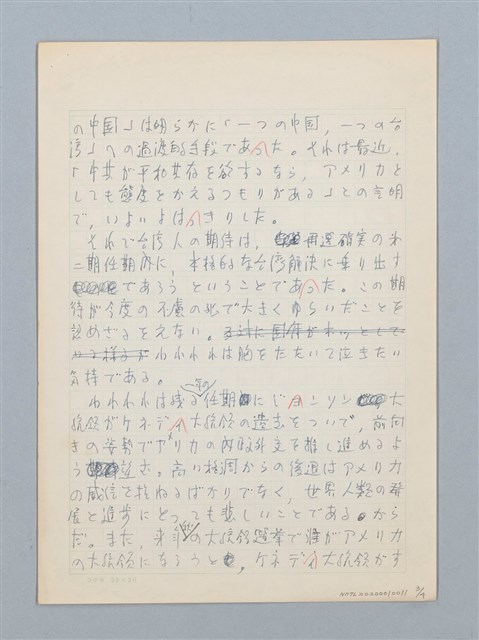 の中国」は明らかに「一つの中国，一つの台
湾」への過渡的手段であった。それは最近，
「中共が平和共存を欲するなら，アメリカと
しても態度をかえるつもりがある」との言明
で，いよいよはっきりした。
それで台湾人の期待は，再選確実の
二期任期内に，本格的な台湾解決に乗り出す
であろうということであった。この期
待が今度の不慮の死で大きくゆらいだことを
認めざるをえない。
われわれは胸をたたいて泣きたい
気持である。
われわれは残る一年の任期にジョンソン大
統領がケネディ大統領の遺志をついで，前向
きの姿勢でアメリカの内政外交を推し進めるよ
う望む。高い格調からの後退はアメリカ
の威信を損ねるばかりでなく，世界人類の発
展と進歩にとっても悲しいことであるから
だ。また，の大統領選挙で誰がアメリカ
の大統領になろうと，ケネディ大統領がす
NMTL20200010011 3/4